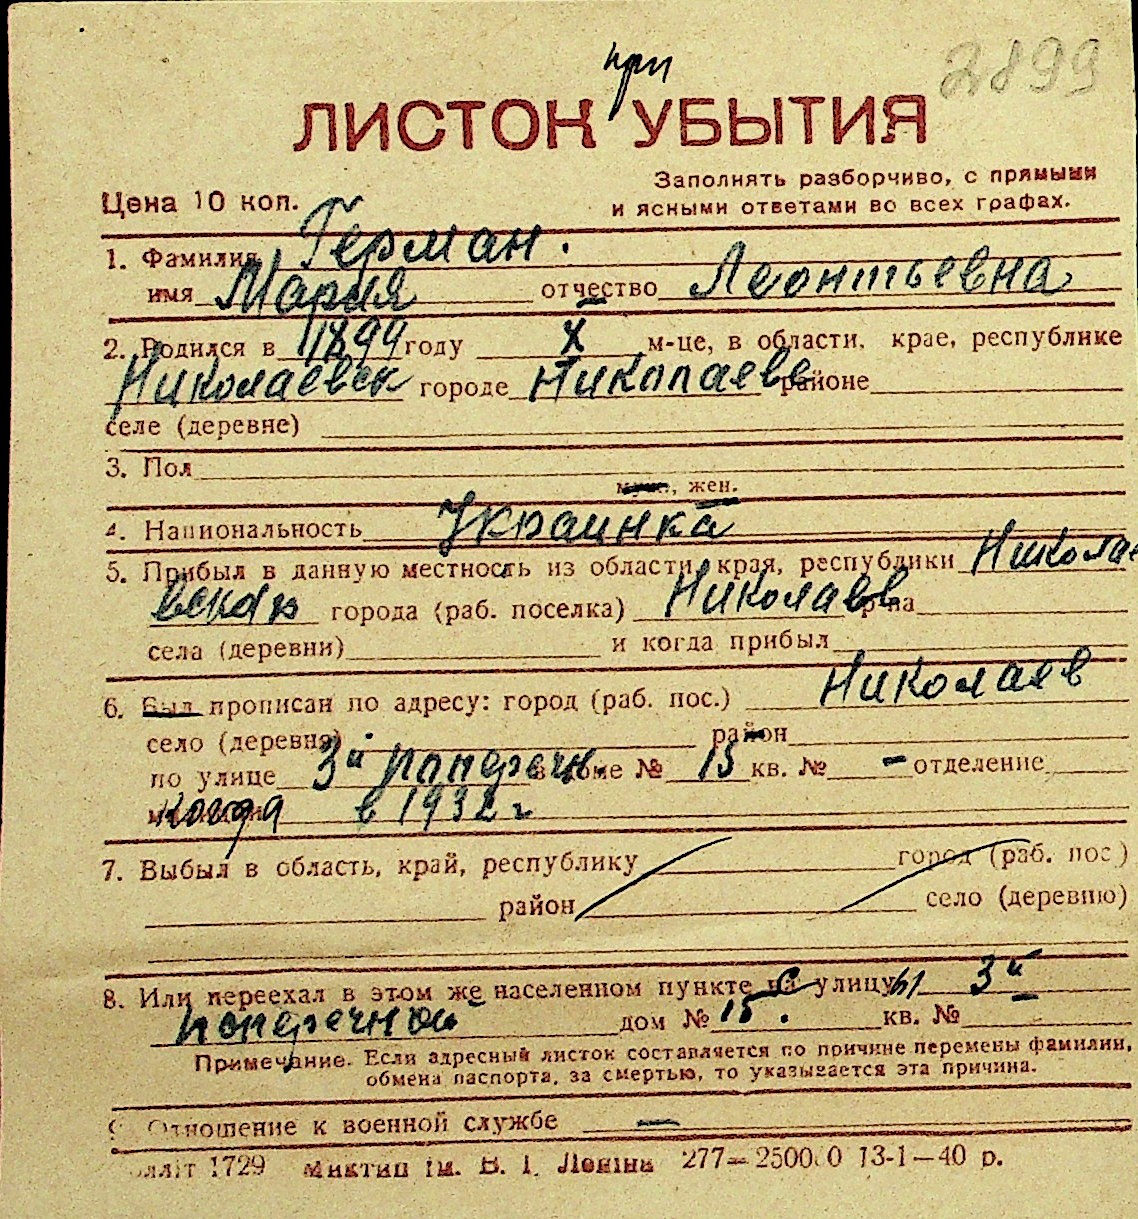 2899
при
ЛИСТОК УБЫТИЯ
Заполнять разборчиво, с прямыми
Цена 10 коп.
и ясными ответами во всех графах.
1. Фамилия Герман.
имя Мария отчество Леонтьевна
2. Родился в 1899 году X м-це, в области, крае, республике
Николаевск городе Николаеве районе
селе (деревне)
3. Пол
муж., жен.
4. Национальность Украинка
5. Прибыл в данную местность из области, края, республики Николае
вской города (раб. поселка) Николаев р-на
села (деревни) и когда прибыл
6. Был прописан по адресу: город (раб. пос.) Николаев
село (деревня) район
по улице 3й попереч. в доме № 15 кв. № - отделение
когда в 1932 г
7. Выбыл в область, край, республику город (раб. пос.)
район село (деревню)
8. Или переехал в этом же населенном пункте с улицы 3й
поперечной дом № 15. кв. №
Примечание. Если адресный листок составляется по причине перемены фамилии,
обмена паспорта, за смертью, то указывается эта причина.
9. Отношение к военной службе —
1729 Миктип ім. В. І. Леніна 277—25000 13-1—40 р.